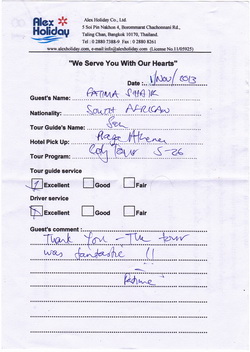 Alex Holiday
Alex Holiday Co., Ltd.
5 Soi Pin Nakhon 4, Boromratcha Chachonnani Rd.,
Taling Chan, Bangkok 10170, Thailand.
Fax : 0 2880 8261
www.alexholiday.com, e-mail:info@alexholiday.com (License No.11/05925)
"We Serve You With Our Hearts"
Date : 1/Nov/2013
Guest's Name: FATIMA SHAIK
Nationality: SOUTH AFRICAN
Tour Guide's Name:
Hotel Pick Up:
Tour Program: City Tour
Tour guide service
Excellent Good Fair
Driver service
Excellent Good Fair
Guest's comment :
Thank You - The tour
was fantastic !!